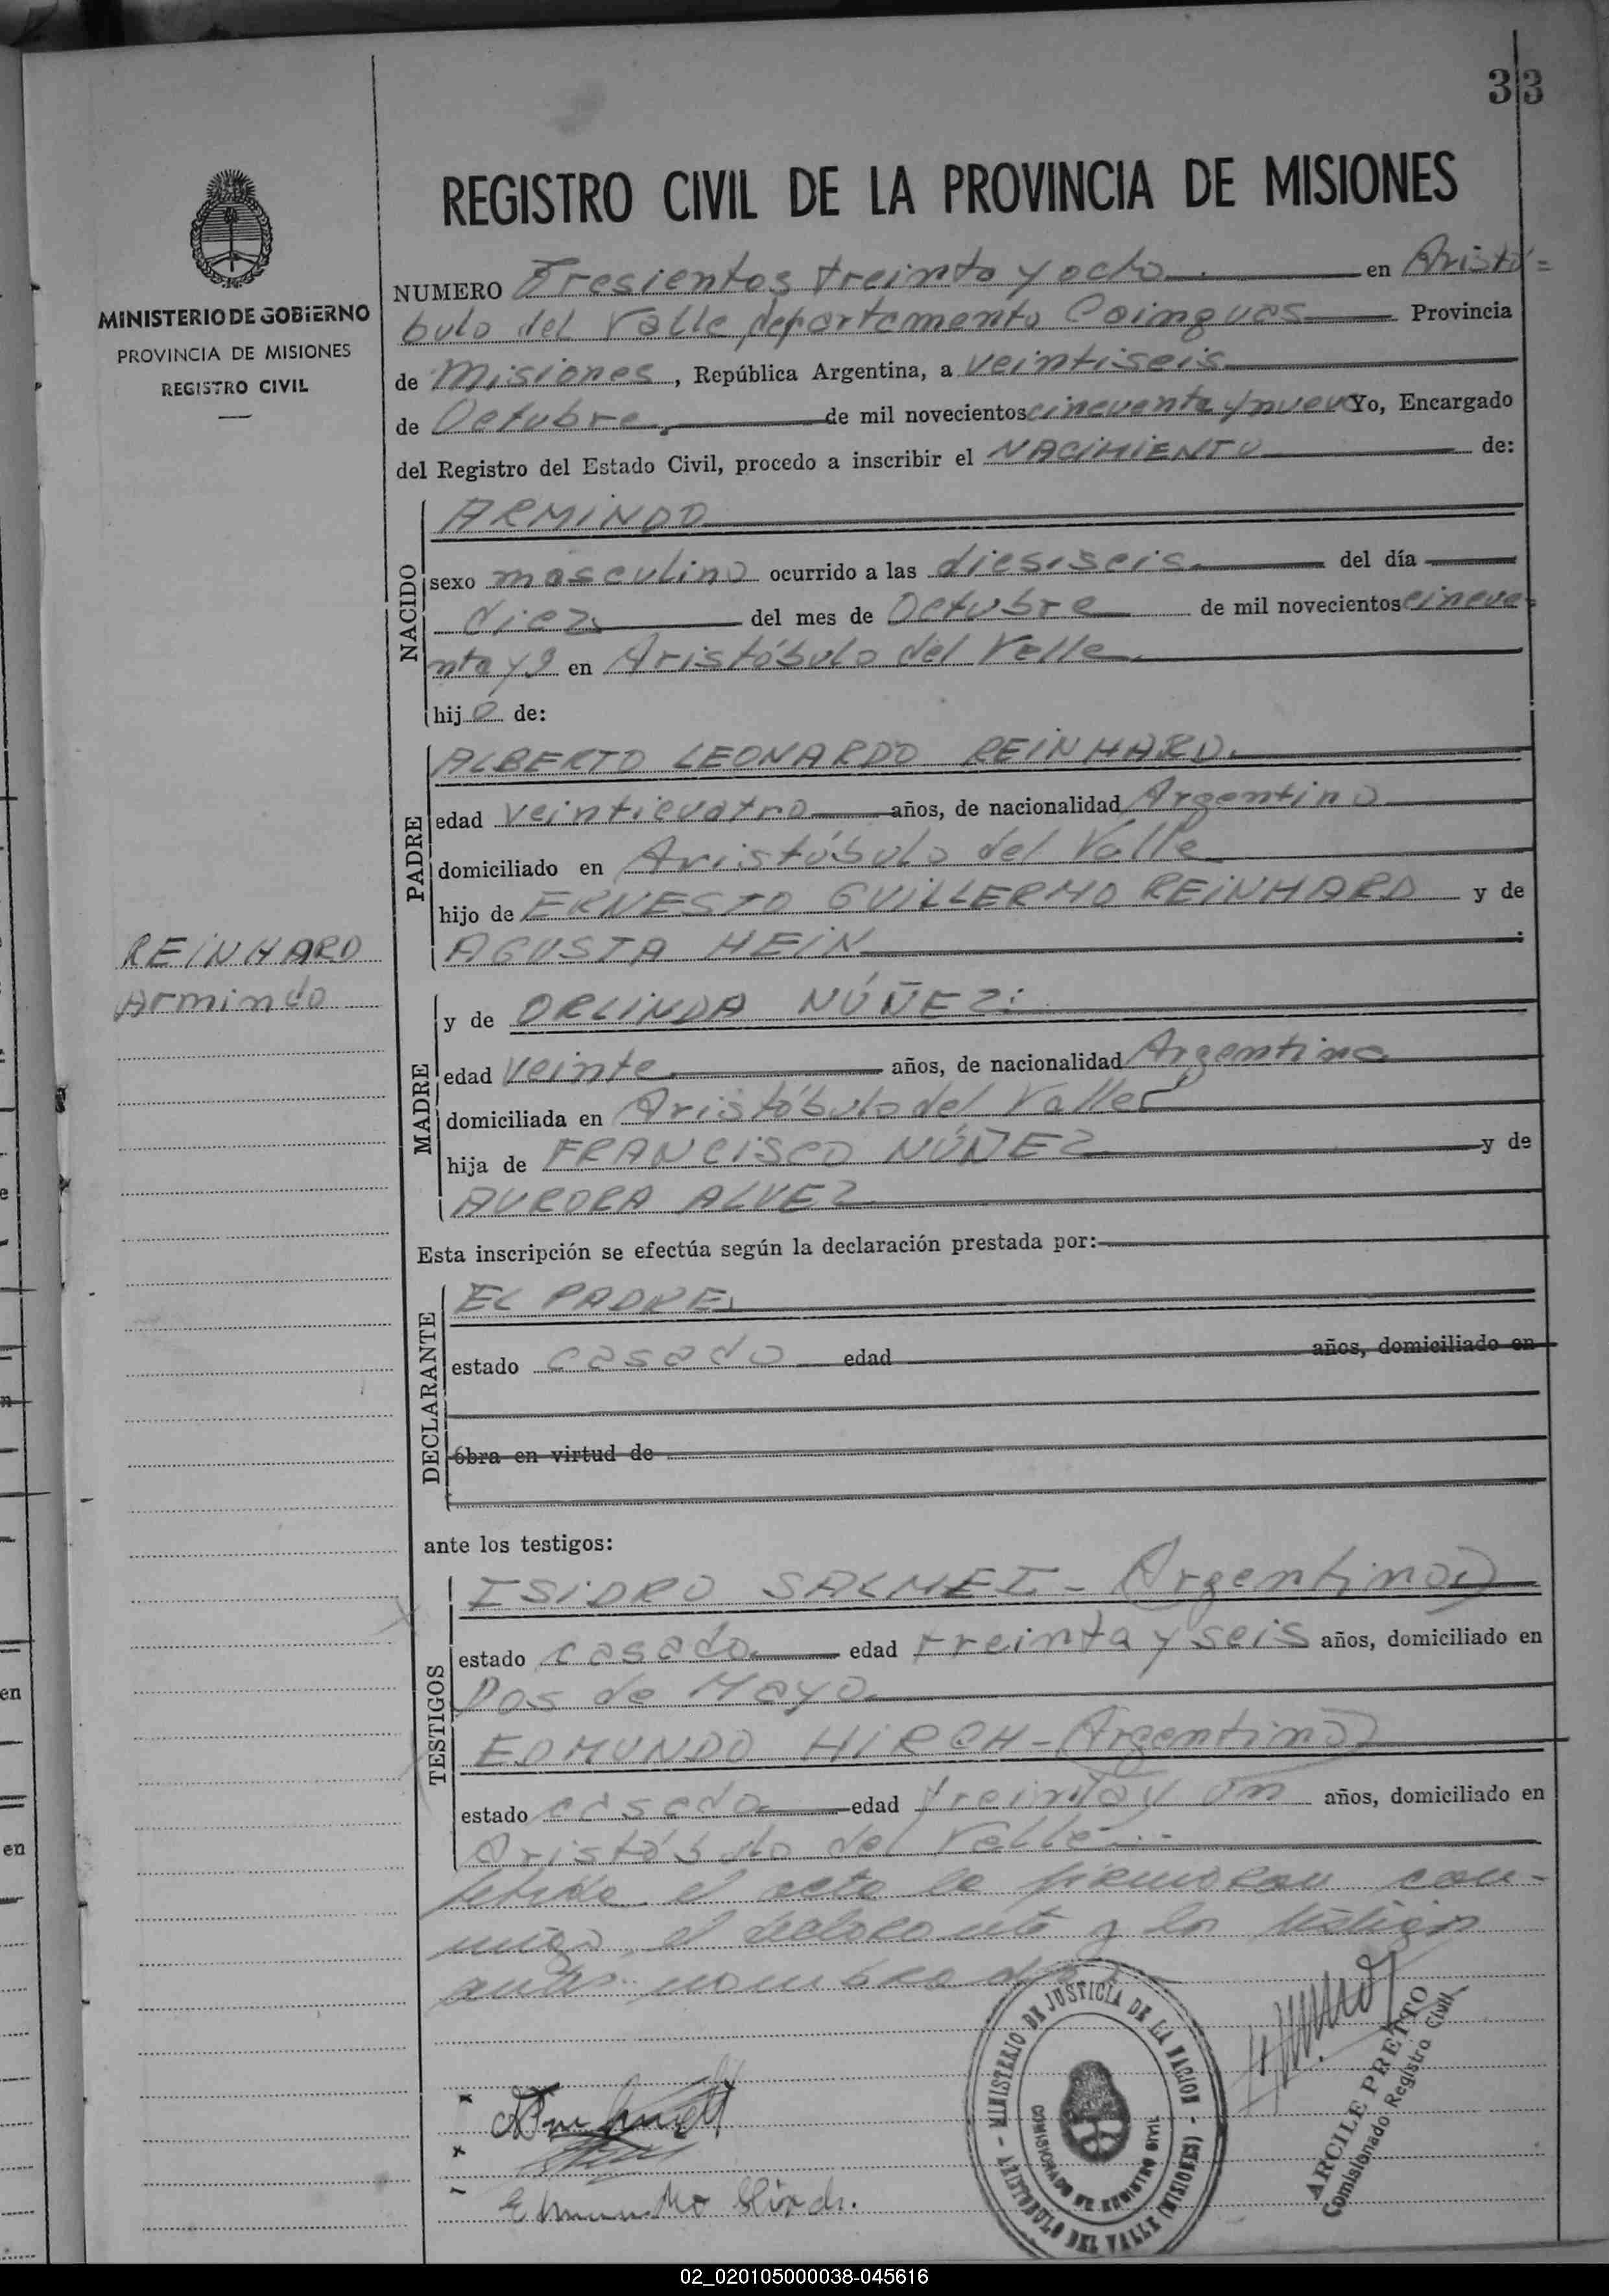 33
REGISTRO CIVIL DE LA PROVINCIA DE MISIONES
MINISTERIO DE GOBIERNO
PROVINCIA DE MISIONES
REGISTRO CIVIL
NUMERO Tresientos treinta y ocho en Aristó=
bulo del Valle departamento Cainguas Provincia
de Misiones, República Argentina, a veintiseis
de Octubre de mil novecientos cincuenta y nueve Yo, Encargado
del Registro del Estado Civil, procedo a inscribir el NACIMIENTO de:
NACIDO
ARMINDO
sexo masculino ocurrido a las diesiseis del día
diez del mes de Octubre de mil novecientos cincue-
nta y 9 en Aristóbulo del Valle
hijo de:
PADRE
ALBERTO LEONARDO REINHARD
edad veinticuatro años, de nacionalidad Argentino
domiciliado en Aristóbulo del Valle
hijo de ERNESTO GUILLERMO REINHARD y de
AGUSTA HEIN
REINHARD
Armindo
MADRE
y de ORLINDA NÚÑEZ:
edad veinte años, de nacionalidad Argentina
domiciliada en Aristóbulo del Valle
hija de FRANCISCO NÚÑEZ y de
AURORA ALVEZ
Esta inscripción se efectúa según la declaración prestada por:
DECLARANTE
EL PADRE
estado casado edad años, domiciliado en
Obra en virtud de
ante los testigos:
TESTIGOS
ISIDRO SALMET - (Argentino)
estado casado edad treinta y seis años, domiciliado en
Dos de Mayo
EDMUNDO HIRCH - (Argentino)
estado casado edad treinta y un años, domiciliado en
Aristóbulo del Valle
leida el acta la firmaron con-
migo el declarante y los testigos
antes nombrados
MINISTERIO DE JUSTICIA DE LA NACION
COMISIONADO DE REGISTRO CIVIL
ARISTOBULO DEL VALLE (MISIONES)
ARCILE PRETTO
Comisionado Registro Civil
Edmundo Hirch.
02_020105000038-045616